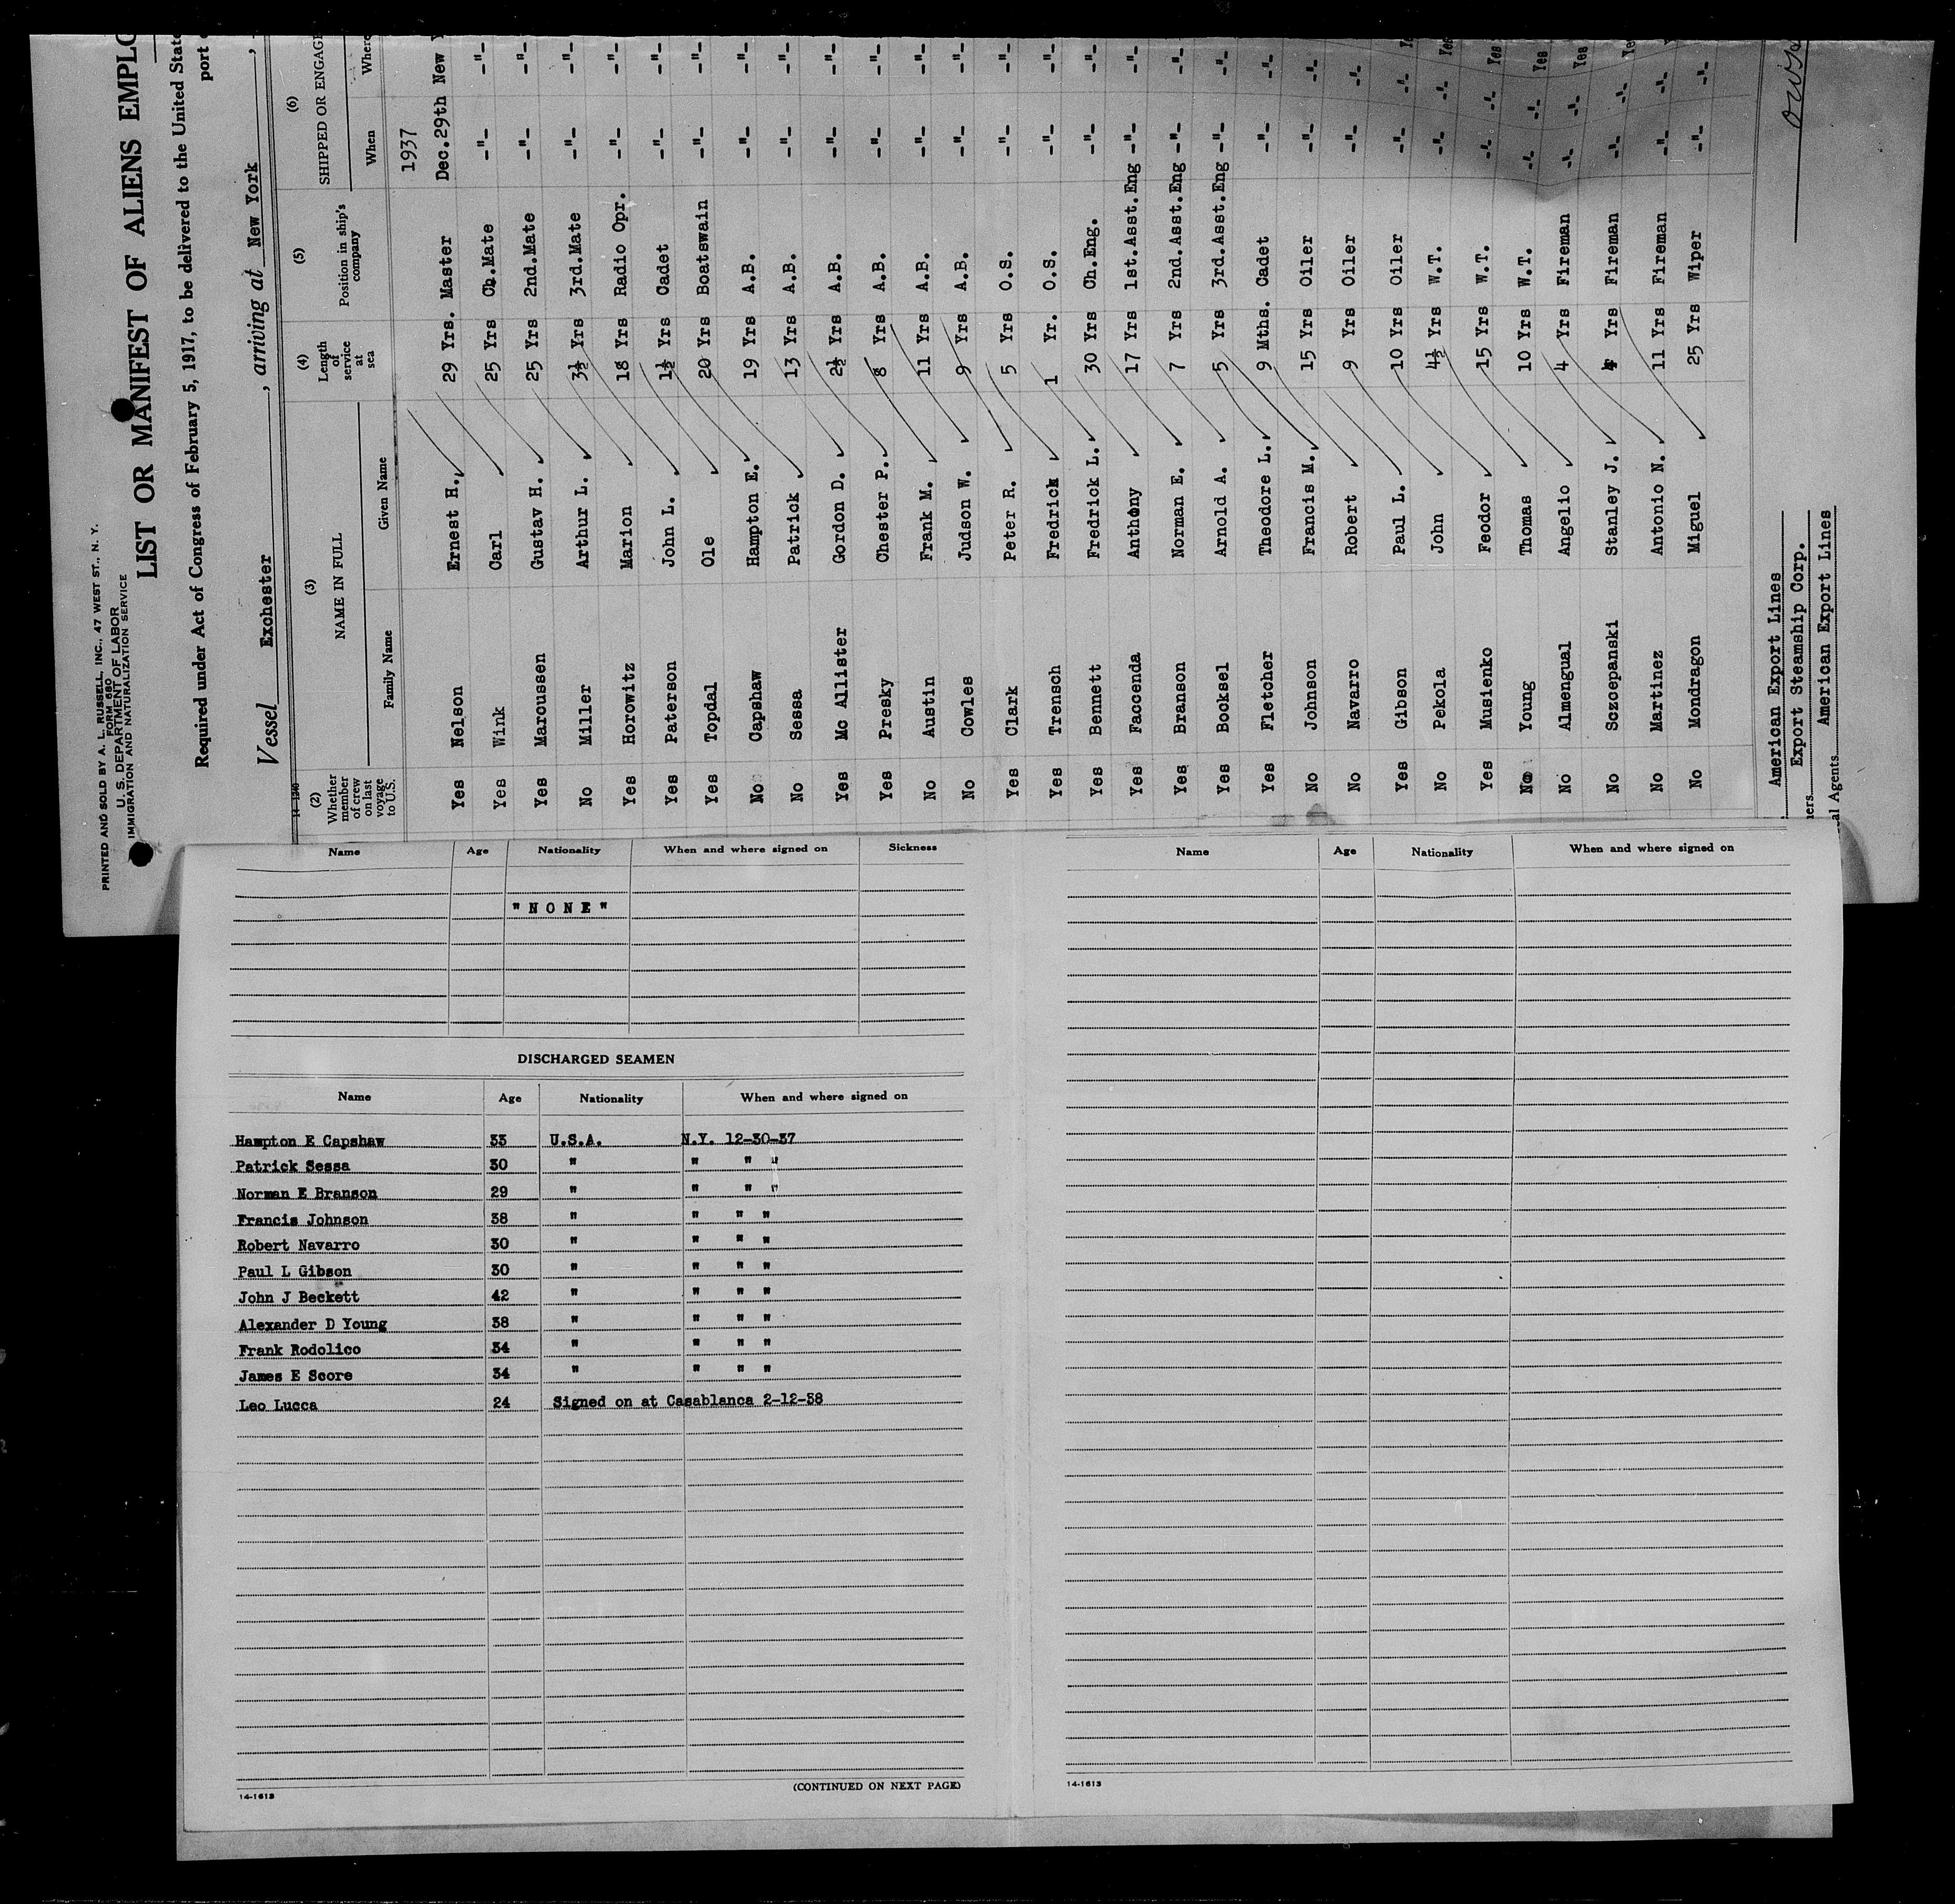 PRINTED AND SOLD BY A. L. RUSSELL, INC., 47 WEST ST., N. Y.
FORM 680
U. S. DEPARTMENT OF LABOR
IMMIGRATION AND NATURALIZATION SERVICE
LIST OR MANIFEST OF ALIENS EMPLO
Required under Act of Congress of February 5, 1917, to be delivered to the United State
port
Vessel Exchester , arriving at New York ,
14-1240
(2) Whether member of crew on last voyage to U.S. (3) NAME IN FULL Family Name Given Name (4) Length of service at sea (5) Position in ship's company (6) SHIPPED OR ENGAGE When Where
1937
Yes Nelson Ernest H. 29 Yrs. Master Dec.29th New Y
Yes Wink Carl 25 Yrs Ch.Mate -"- -"-
Yes Maroussen Gustav H. 25 Yrs 2nd.Mate -"- -"-
No Miller Arthur L. 3½ Yrs 3rd.Mate -"- -"-
Yes Horowitz Marion 18 Yrs Radio Opr. -"- -"-
Yes Paterson John L. 1½ Yrs Cadet -"- -"-
Yes Topdal Ole 20 Yrs Boatswain -"- -"-
No Capshaw Hampton E. 19 Yrs A.B. -"- -"-
No Sessa Patrick 13 Yrs A.B. -"- -"-
Yes Mc Allister Gordon D. 2½ Yrs A.B. -"- -"-
Yes Presky Chester P. 8 Yrs A.B. -"- -"-
No Austin Frank M. 11 Yrs A.B. -"- -"-
No Cowles Judson W. 9 Yrs A.B. -"- -"-
Yes Clark Peter R. 5 Yrs O.S. -"- -"-
Yes Trensch Fredrick 1 Yr. O.S. -"- -"-
Yes Bennett Fredrick L. 30 Yrs Ch.Eng. -"- -"-
Yes Faccenda Anthony 17 Yrs 1st.Asst.Eng -"- -"-
Yes Branson Norman E. 7 Yrs 2nd.Asst.Eng -"- -"-
Yes Bocksel Arnold A. 5 Yrs 3rd.Asst.Eng -"- -"-
Yes Fletcher Theodore L. 9 Mths. Cadet -"- -"-
No Johnson Francis M. 15 Yrs Oiler -"- -"-
No Navarro Robert 9 Yrs Oiler -"- -"-
Yes Gibson Paul L. 10 Yrs Oiler -"- -"- Ye
No Pekola John 4½ Yrs W.T. -"- -"- Yes
Yes Musienko Feodor 15 Yrs W.T. -"- -"- Yes
No Young Thomas 10 Yrs W.T. -"- -"- Yes
No Almengual Angelio 4 Yrs Fireman -"- -"- Yes
No Sczcepanski Stanley J. 4 Yrs Fireman -"- -"- Ye
No Martinez Antonio N. 11 Yrs Fireman -"- -"-
No Mondragon Miguel 25 Yrs Wiper -"-
American Export Lines
ners Export Steamship Corp.
al Agents American Export Lines
Name Age Nationality When and where signed on Sickness
"NONE"
DISCHARGED SEAMEN
Name Age Nationality When and where signed on
Hampton E Capshaw 33 U.S.A. N.Y. 12-30-37
Patrick Sessa 30 " " " "
Norman E Branson 29 " " " "
Francis Johnson 38 " " " "
Robert Navarro 30 " " " "
Paul L Gibson 30 " " " "
John J Beckett 42 " " " "
Alexander D Young 38 " " " "
Frank Rodolico 34 " " " "
James E Score 34 " " " "
Leo Lucca 24 Signed on at Casablanca 2-12-38
14-1613
(CONTINUED ON NEXT PAGE)
Name Age Nationality When and where signed on
14-1613